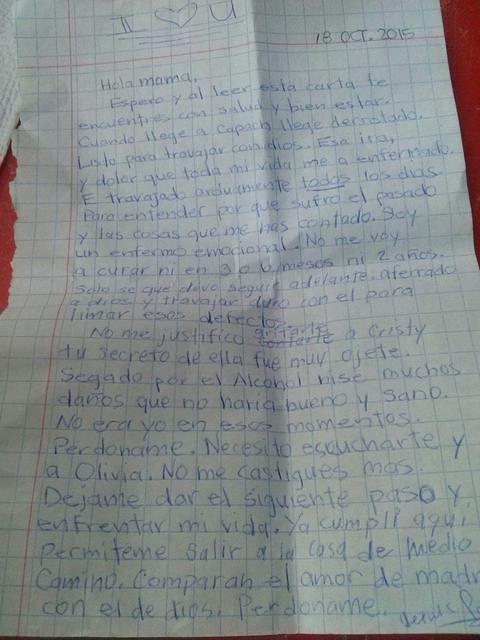 I ♡ U
18 OCT. 2015
Hola mama.
Espero y al leer esta carta te
encuentres con salud y bien estar.
Cuando llege a Capach llege derrotado.
Listo para travajar con dios. Esa ira,
y dolor que toda mi vida me a enfermado.
E travajado arduamente todos los dias.
Para entender por que sufro el pasado
y las cosas que me has contado. Soy
un enfermo emocional. No me voy
a curar ni en 3 o 6 mesos ni 2 años.
Solo se que devo seguir adelante. aferrado
a dios y travajar duro con el para
limar esos defectos.
No me justifico gritarle a Cristy
tu secreto de ella fue muy ojete.
Segado por el Alcohol hise muchos
daños que no haria bueno y sano.
No era yo en esos momentos.
Perdoname. Necesito escucharte y
a Olivia. No me castigues mas.
Dejame dar el siguiente paso y
enfrentar mi vida. Ya cumpli aqui.
Permiteme salir a la casa de Medio
Camino. Comparan el amor de madre
con el de dios. Perdoname.